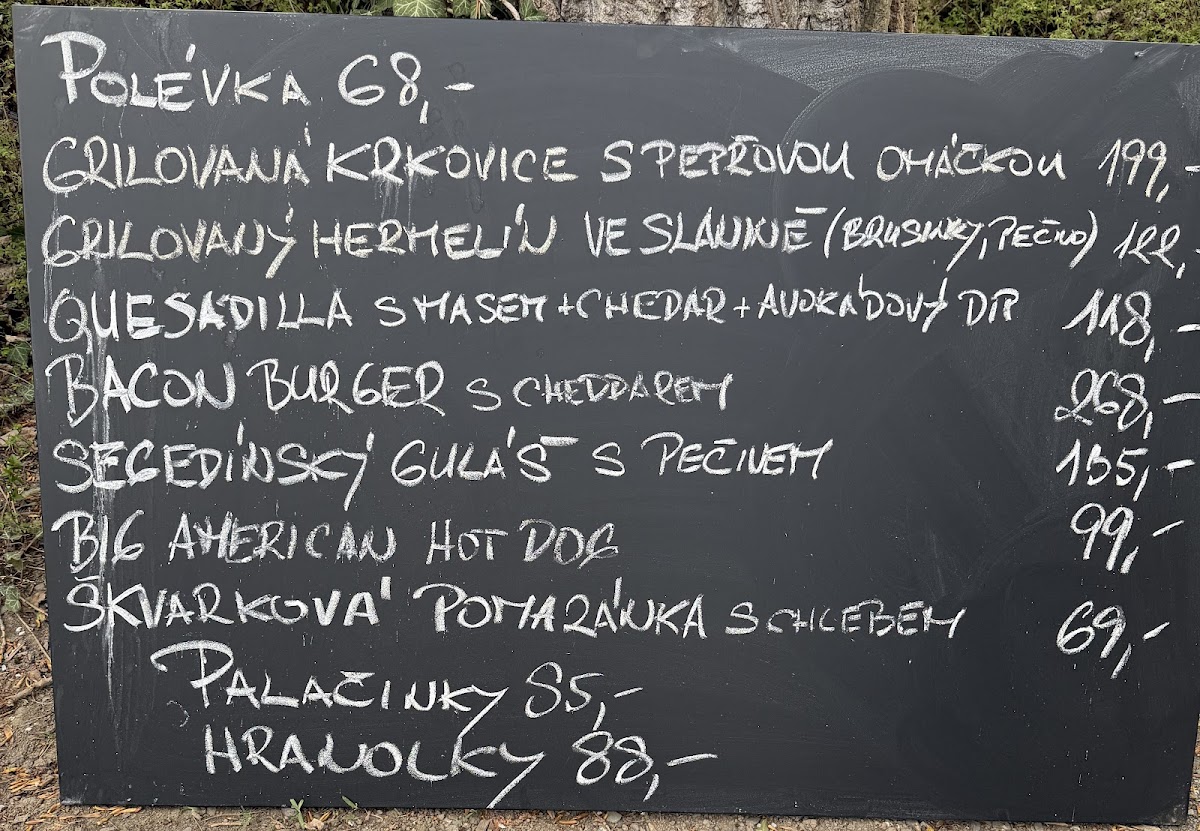 POLÉVKA 68,-
GRILOVANÁ KRKOVICE S PEPŘOVOU OMÁČKOU 199,-
GRILOVANÝ HERMELÍN VE SLANINĚ (BRUSINKY, PEČIVO) 122,-
QUESADILLA S MASEM + CHEDAR + AVOKÁDOVÝ DIP 118,-
BACON BURGER S CHEDDAREM 268,-
SEGEDÍNSKÝ GULÁŠ S PEČIVEM 155,-
BIG AMERICAN HOT DOG 99,-
ŠKVARKOVÁ POMAZÁNKA S CHLEBEM 69,-
PALAČINKY 85,-
HRANOLKY 88,-